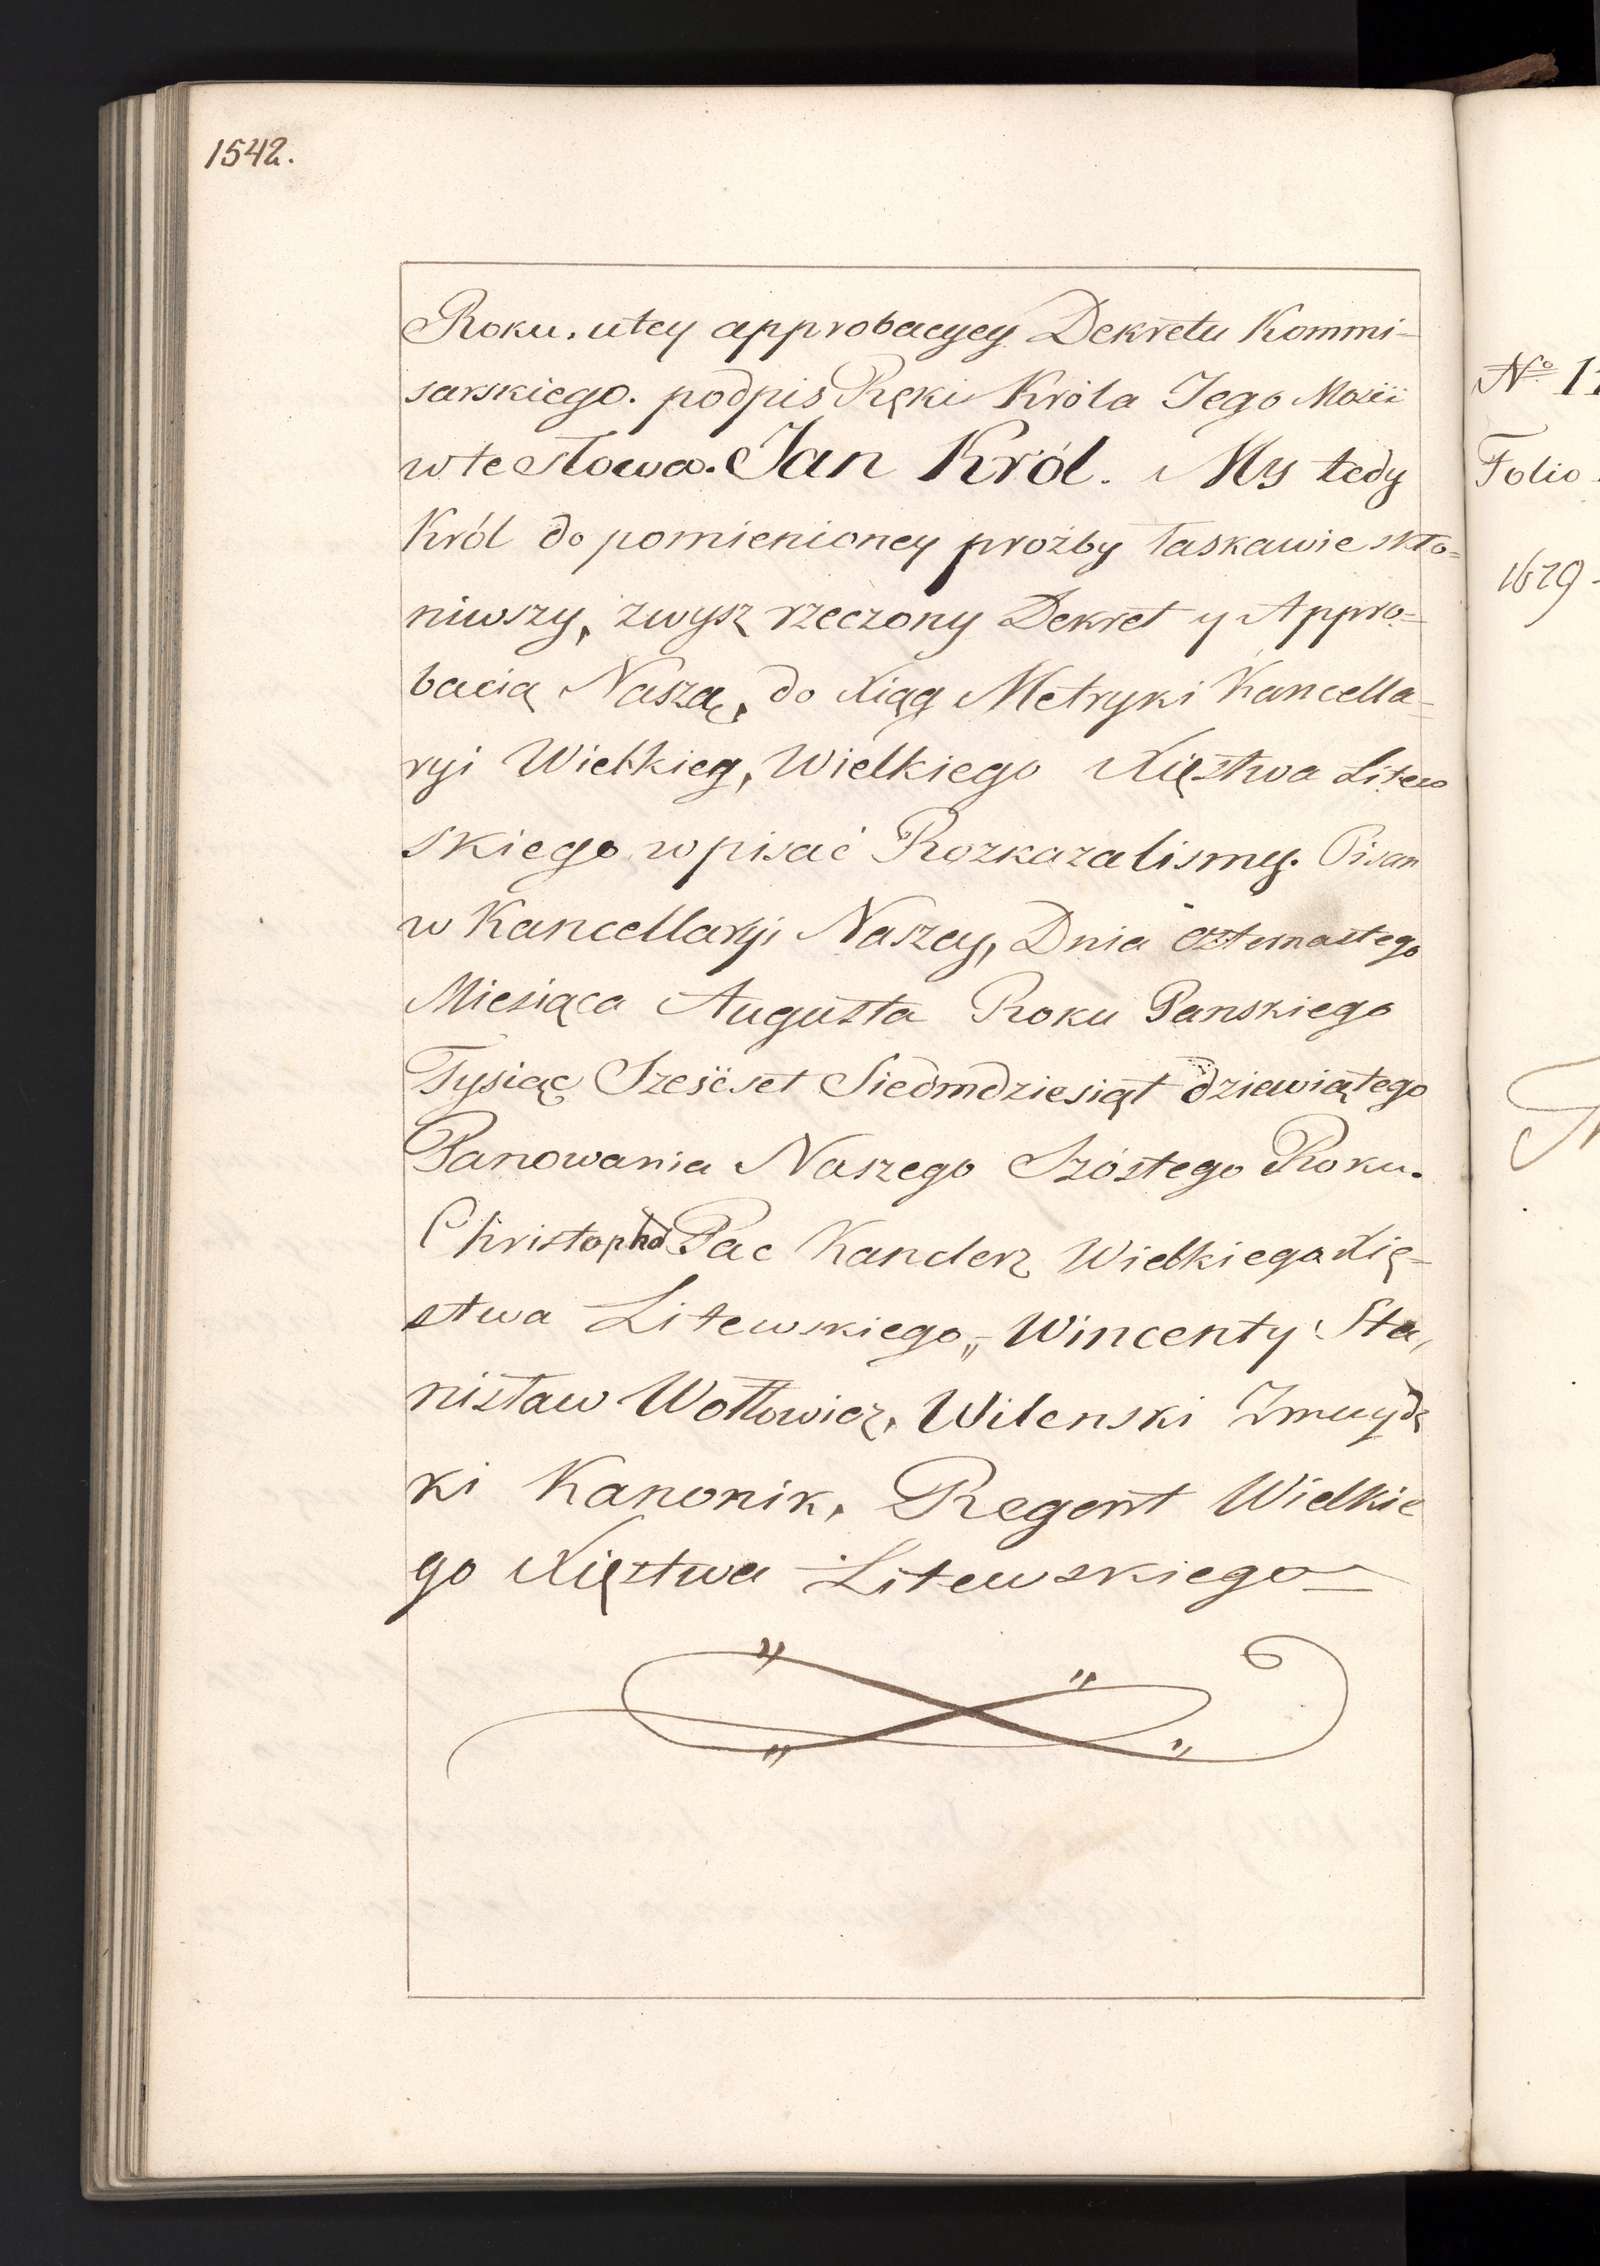 1542.
Roku. utey approbacyey Dekretu Kommi-
sarskiego. podpis Ręki Króla Jego Mości
w te słowa. Jan Król. My tedy
Król do pomienioney proźby łaskawie skło=
niwszy, zwysz rzeczony Dekret y Appro=
bacią Naszą, do Xiąg Metryki Kancella=
ryi Wielkiey, Wielkiego Xięstwa Litew
skiego wpisać Rozkazalismy. Pisan
w Kancellaryi Naszey, Dnia czternastego
Miesiąca Augusta Roku Panskiego
Tysiąc Sześćset Siedmdziesiąt dziewiątego
Panowania Naszego Szóstego Roku.
Christophor Pac Kanclerz Wielkiego Xię-
stwa Litewskiego,, Wincenty Sta,
nisław Wołłowicz, Wilenski Żmuydz
ki Kanonik, Regent Wielkie
go Xięstwa Litewskiego
Nº 1
Folio
1679